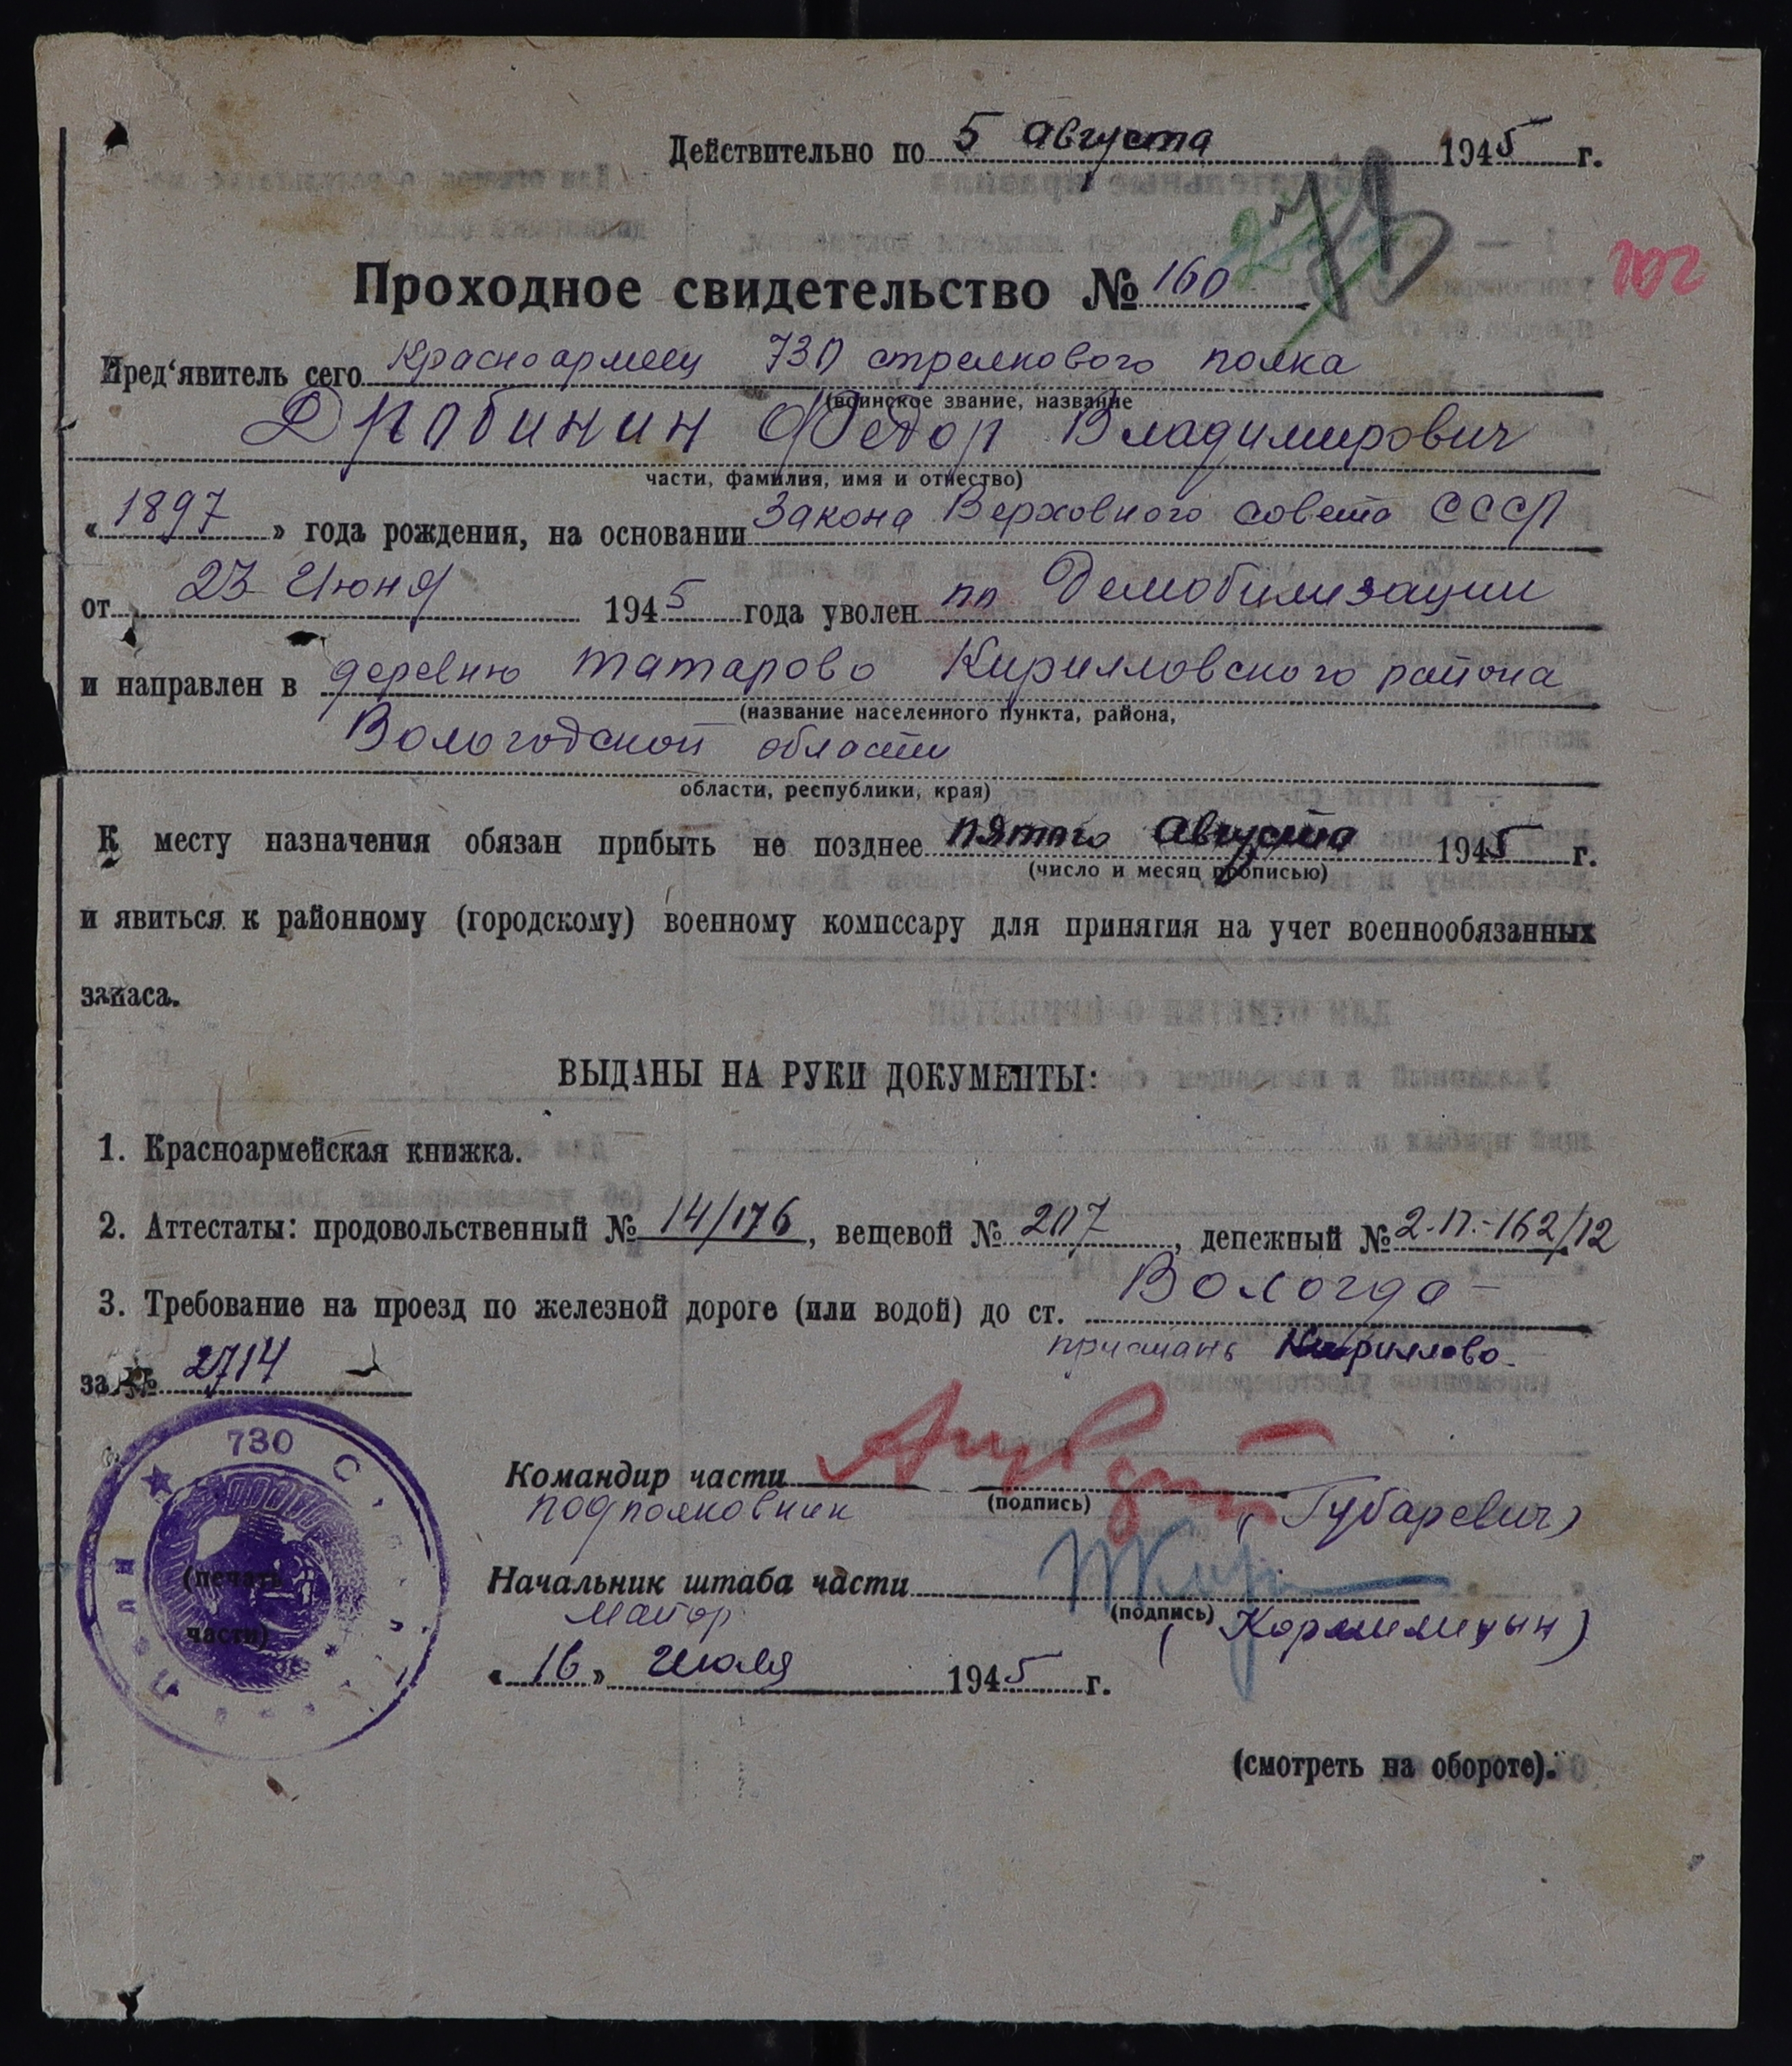 Действительно по 5 Августа 1945 г.
Проходное свидетельство № 160
202
Пред‘явитель сего Красноармеец 730 стрелкового полка
(воинское звание, название
Дробинин Федор Владимирович
части, фамилия, имя и отчество)
« 1897 » года рождения, на основании Закона Верховного совета СССР
от 23 Июня 1945 года уволен по Демобилизации
и направлен в деревню Татарово Кирилловского района
(название населенного пункта, района,
Вологодской области
области, республики, края)
К месту назначения обязан прибыть не позднее пятого Августа 1945 г.
(число и месяц прописью)
и явиться к районному (городскому) военному комиссару для принятия на учет военнообязанных
запаса.
ВЫДАНЫ НА РУКИ ДОКУМЕНТЫ:
1. Красноармейская книжка.
2. Аттестаты: продовольственный № 14/176, вещевой № 207, денежный № 2-П.-162/12
3. Требование на проезд по железной дороге (или водой) до ст. Вологда –
пристань Кириллово
за № 2714
730
Командир части
(подпись)
подполковник (Губаревич)
(печать
Начальник штаба части
(подпись)
части)
майор
« 16 » Июля 1945 г.
(смотреть на обороте).